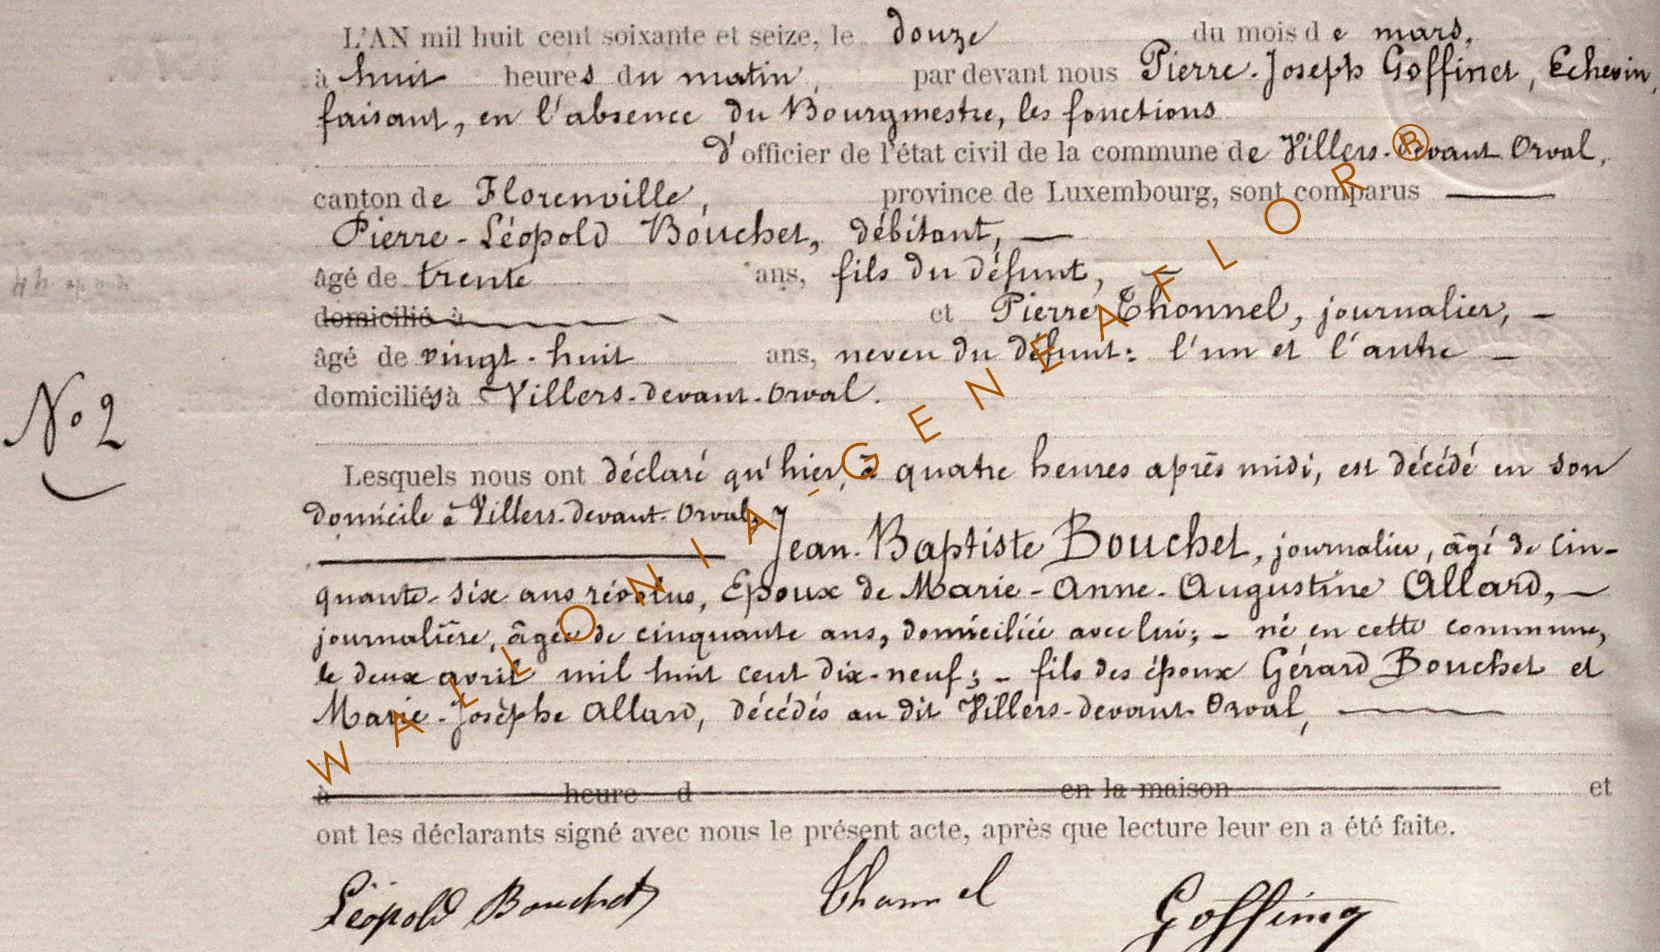 L'AN mil huit cent soixante et seize, le douze du mois de mars,
à huit heures du matin, par devant nous Pierre-Joseph Goffinet, Echevin,
faisant, en l'absence du Bourgmestre, les fonctions
d'officier de l'état civil de la commune de Villers-devant Orval,
canton de Florenville, province de Luxembourg, sont comparus
Pierre-Léopold Bouchet, débitant,
âgé de trente ans, fils du défunt,
domicilié à et Pierre Thonnel, journalier,
âgé de vingt-huit ans, neveu du défunt: l'un et l'autre
domiciliés à Villers-devant-Orval.
No 2
Lesquels nous ont déclaré qu'hier, à quatre heures après midi, est décédé en son
domicile à Villers-devant-Orval,
Jean-Baptiste Bouchet, journalier, âgé de cin-
quante-six ans révolus, Epoux de Marie-Anne-Augustine Allard,
journalière, âgée de cinquante ans, domiciliée avec lui; - né en cette commune,
le deux avril mil huit cent dix-neuf; - fils des époux Gérard Bouchet et
Marie-Josèphe Allard, décédés au dit Villers-devant-Orval,
à heure d en la maison et
ont les déclarants signé avec nous le présent acte, après que lecture leur en a été faite.
Léopold Bouchet Thonnel
WALLONIA-GENEAFLOR®